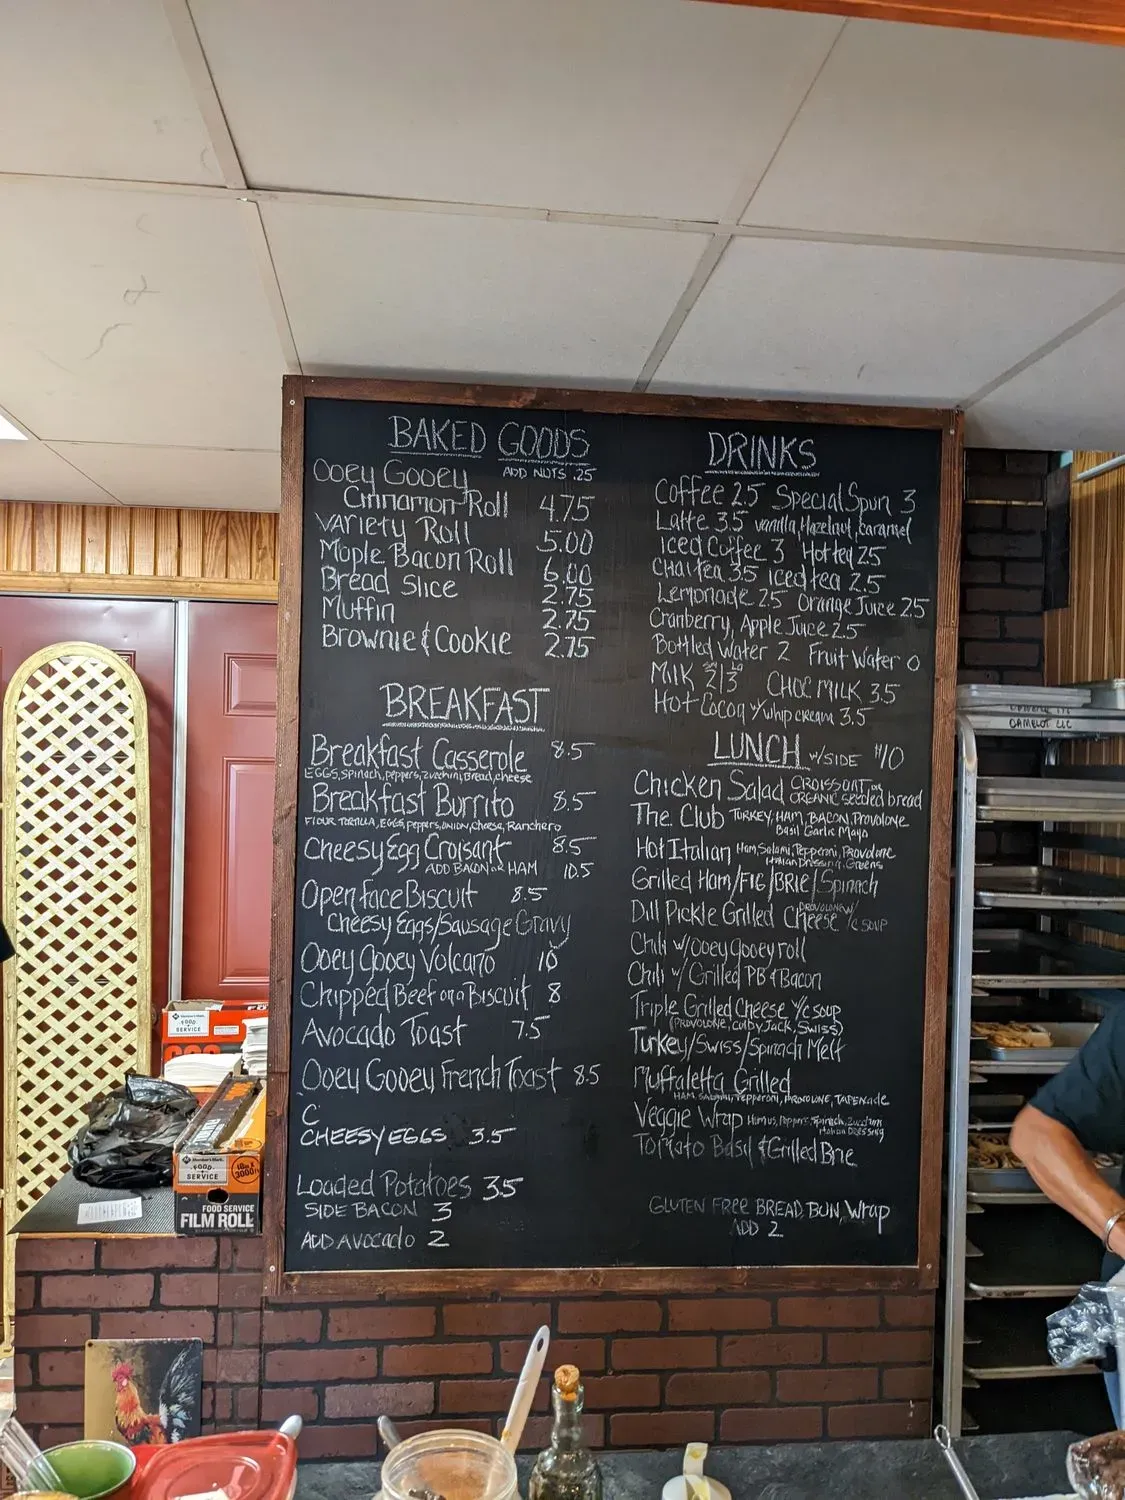 BAKED GOODS
ADD NUTS .25
Ooey Gooey
Cinnamon Roll 4.75
Variety Roll 5.00
Maple Bacon Roll 6.00
Bread Slice 2.75
Muffin 2.75
Brownie & Cookie 2.75
BREAKFAST
Breakfast Casserole 8.5
EGGS, spinach, peppers, zucchini, Bread, cheese
Breakfast Burrito 8.5
FlOUR TORTILLA, EGGS, Peppers, ONION, cheese, Ranchero
Cheesy Egg Croisant 8.5
ADD BACON OR HAM 10.5
Open Face Biscuit 8.5
Cheesy Eggs/Sausage Gravy
Ooey Gooey Volcano 10
Chipped Beef on a Biscuit 8
Avocado Toast 7.5
Ooey Gooey French Toast 8.5
C
CHEESY EGGS 3.5
Loaded Potatoes 3.5
SIDE BACON 3
ADD AVOCADO 2
DRINKS
Coffee 2.5 Special Spun 3
Latte 3.5 vanilla, Hazelnut, caramel
Iced Coffee 3 Hot tea 2.5
Chai tea 3.5 iced tea 2.5
Lemonade 2.5 Orange Juice 2.5
Cranberry, Apple Juice 2.5
Bottled Water 2 Fruit Water 0
Milk sm 2/ lg 3 CHOC MILK 3.5
Hot Cocoa w/whip cream 3.5
LUNCH w/SIDE $10
Chicken Salad CROISSANT or
ORGANIC seeded bread
The Club TURKEY, HAM, BACON, Provolone
Basil Garlic Mayo
Hot Italian Ham, Salami, Pepperoni, Provolone
Italian Dressing, Greens
Grilled Ham/FIG/BRIE/Spinach
Dill Pickle Grilled Cheese PROVOLONE w/
/C SOUP
Chili w/Ooey gooey roll
Chili w/ Grilled PB & Bacon
Triple Grilled Cheese w/c SOUP
(PROVOLONE, COLBY JACK, SWISS)
Turkey/Swiss/Spinach Melt
Muffaletta Grilled
HAM, SALAMI, Pepperoni, PROVOLONE, TAPENADE
Veggie Wrap Humus, Peppers, Spinach, Zucchini
Italian DRESSING
Tomato Basil & Grilled Brie
GLUTEN FREE BREAD, BUN, Wrap
ADD 2
CAMELOT LLC
Member's Mark
FOOD
SERVICE
Member's Mark
FOOD
SERVICE
18in x
3000ft
FOOD SERVICE
FILM ROLL